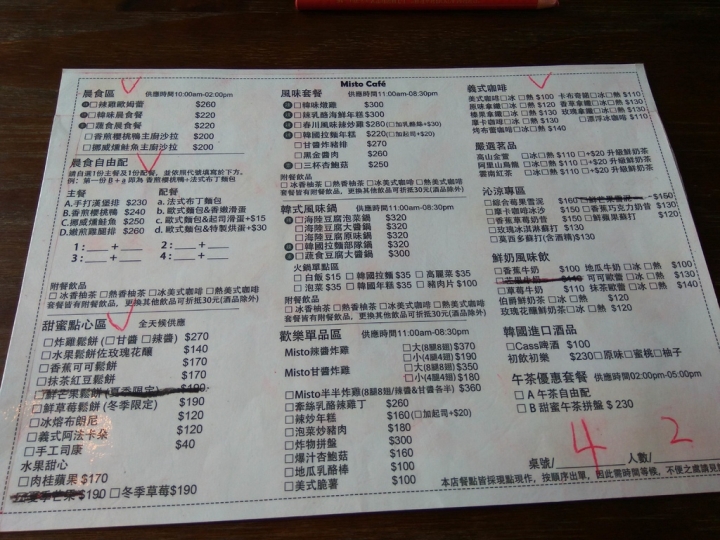 Misto Café
晨食區 供應時間10:00am-02:00pm
□辣雞歐姆蛋 $260
□韓味晨食餐 $220
□蔬食晨食餐 $220
□香煎櫻桃鴨主廚沙拉 $200
□挪威燻鮭魚主廚沙拉 $200
晨食自由配
請自選1份主餐及1份配餐, 並依照代號填寫於下方。
例: 第一份 B + a 即為 香煎櫻桃鴨+法式布丁麵包
主餐 配餐
A.手打漢堡排 $230 a. 法式布丁麵包
B.香煎櫻桃鴨 $240 b. 歐式麵包&香嫩滑蛋
C.挪威燻鮭魚 $250 c. 歐式麵包&起司滑蛋+$15
D.嫩煎雞腿排 $260 d. 歐式麵包&特製烘蛋+$30
1 : ___ + ___ 2 : ___ + ___
3 : ___ + ___ 4 : ___ + ___
附餐飲品
□冰香柚茶 □熱香柚茶 □冰美式咖啡 □熱美式咖啡
套餐皆有附餐飲品, 更換其他飲品可折抵30元(酒品除外)
甜蜜點心區 全天候供應
□炸雞鬆餅 (□甘醬 □辣醬) $270
□水果鬆餅佐玫瑰花釀 $140
□香蕉可可鬆餅 $170
□抹茶紅豆鬆餅 $170
□鮮芒果鬆餅 (夏季限定) $190
□鮮草莓鬆餅 (冬季限定) $190
□冰熔布朗尼 $120
□義式阿法卡朵 $120
□手工司康 $40
水果甜心
□肉桂蘋果 $170
□夏季芒果$190 □冬季草莓$190
風味套餐 供應時間11:00am-08:30pm
□韓味燉雞 $300
□辣乳酪海鮮年糕 $300
□春川風味辣炒雞 $260(□加乳酪絲+$30)
□韓國拉麵年糕 $220(□加起司+$20)
□甘醬炸豬排 $270
□黑金醬肉 $260
□三杯杏鮑菇 $250
附餐飲品
□冰香柚茶 □熱香柚茶 □冰美式咖啡 □熱美式咖啡
套餐皆有附餐飲品, 更換其他飲品可折抵30元(酒品除外)
韓式風味鍋 供應時間11:00am-08:30pm
□海陸豆腐泡菜鍋 $320
□海陸豆腐大醬鍋 $320
□海陸豆腐原味鍋 $320
□韓國拉麵部隊鍋 $320
□蔬食豆腐大醬鍋 $300
火鍋單點區
□白飯 $15 □韓國拉麵 $35 □高麗菜 $35
□泡菜 $35 □韓國年糕 $35 □豬肉片 $100
附餐飲品
□冰香柚茶 □熱香柚茶 □冰美式咖啡 □熱美式咖啡
套餐皆有附餐飲品, 更換其他飲品可折抵30元(酒品除外)
歡樂單品區 供應時間11:00am-08:30pm
Misto辣醬炸雞 □大(8腿8翅) $370
□小(4腿4翅) $190
Misto甘醬炸雞 □大(8腿8翅) $350
□小(4腿4翅) $180
□Misto半半炸雞(8腿8翅/辣醬&甘醬各半) $360
□牽絲乳酪辣雞丁 $260
□辣炒年糕 $160(□加起司+$20)
□泡菜炒豬肉 $180
□炸物拼盤 $300
□爆汁杏鮑菇 $160
□地瓜乳酪棒 $100
□美式脆薯 $100
義式咖啡
美式咖啡□冰 □熱 $100 卡布奇諾□冰□熱 $110
原味拿鐵□冰 □熱 $110 香草拿鐵□冰□熱 $130
榛果拿鐵□冰 □熱 $130 玫瑰拿鐵□冰□熱 $130
摩卡咖啡□冰 □熱 $130 □漂浮冰咖啡 $110
烤布蕾咖啡□冰□熱 $140
嚴選茗品
高山金萱 □冰□熱 $110 □+$20 升級鮮奶茶
阿里山烏龍 □冰□熱 $110 □+$20 升級鮮奶茶
雲南紅茶 □冰□熱 $110 □+$20 升級鮮奶茶
沁涼專區
□綜合莓果雪泥 $160 □鮮芒果雪泥 $150
□摩卡咖啡冰沙 $150 □香蕉巧克力奶昔 $130
□香蕉草莓奶昔 $150 □鮮蘋果蘇打 $120
□玫瑰冰淇淋蘇打 $130
□莫西多蘇打(含酒精)$130
鮮奶風味飲
□香蕉牛奶 $100 地瓜牛奶□冰 □熱 $100
□芒果牛奶 $110 可可歐蕾□冰 □熱 $130
□草莓牛奶 $110 抹茶歐蕾□冰 □熱 $130
伯爵鮮奶茶 □冰 □熱 $120
玫瑰花釀鮮奶茶□冰 □熱 $120
韓國進口酒品
□Cass啤酒 $100
初飲初樂 $230□原味□蜜桃□柚子
午茶優惠套餐 供應時間02:00pm-05:00pm
□ A 午茶自由配
□ B 甜蜜午茶拼盤 $ 230
桌號/ 4 人數/ 2
本店餐點皆採現點現作, 按順序出單, 因此需時間等候, 不便之處請見